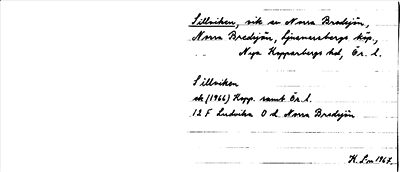 Sillviken, vik av Norra Bredsjön,
Norra Bredsjön, Ljusnarsbergs köp.,
Nya Kopparbergs hd, Ör. l.
Sillviken
ek (1966) Kopp. samt Ör. l.
12 F Ludvika O d. Norra Bredsjön
H. L-n 1967.